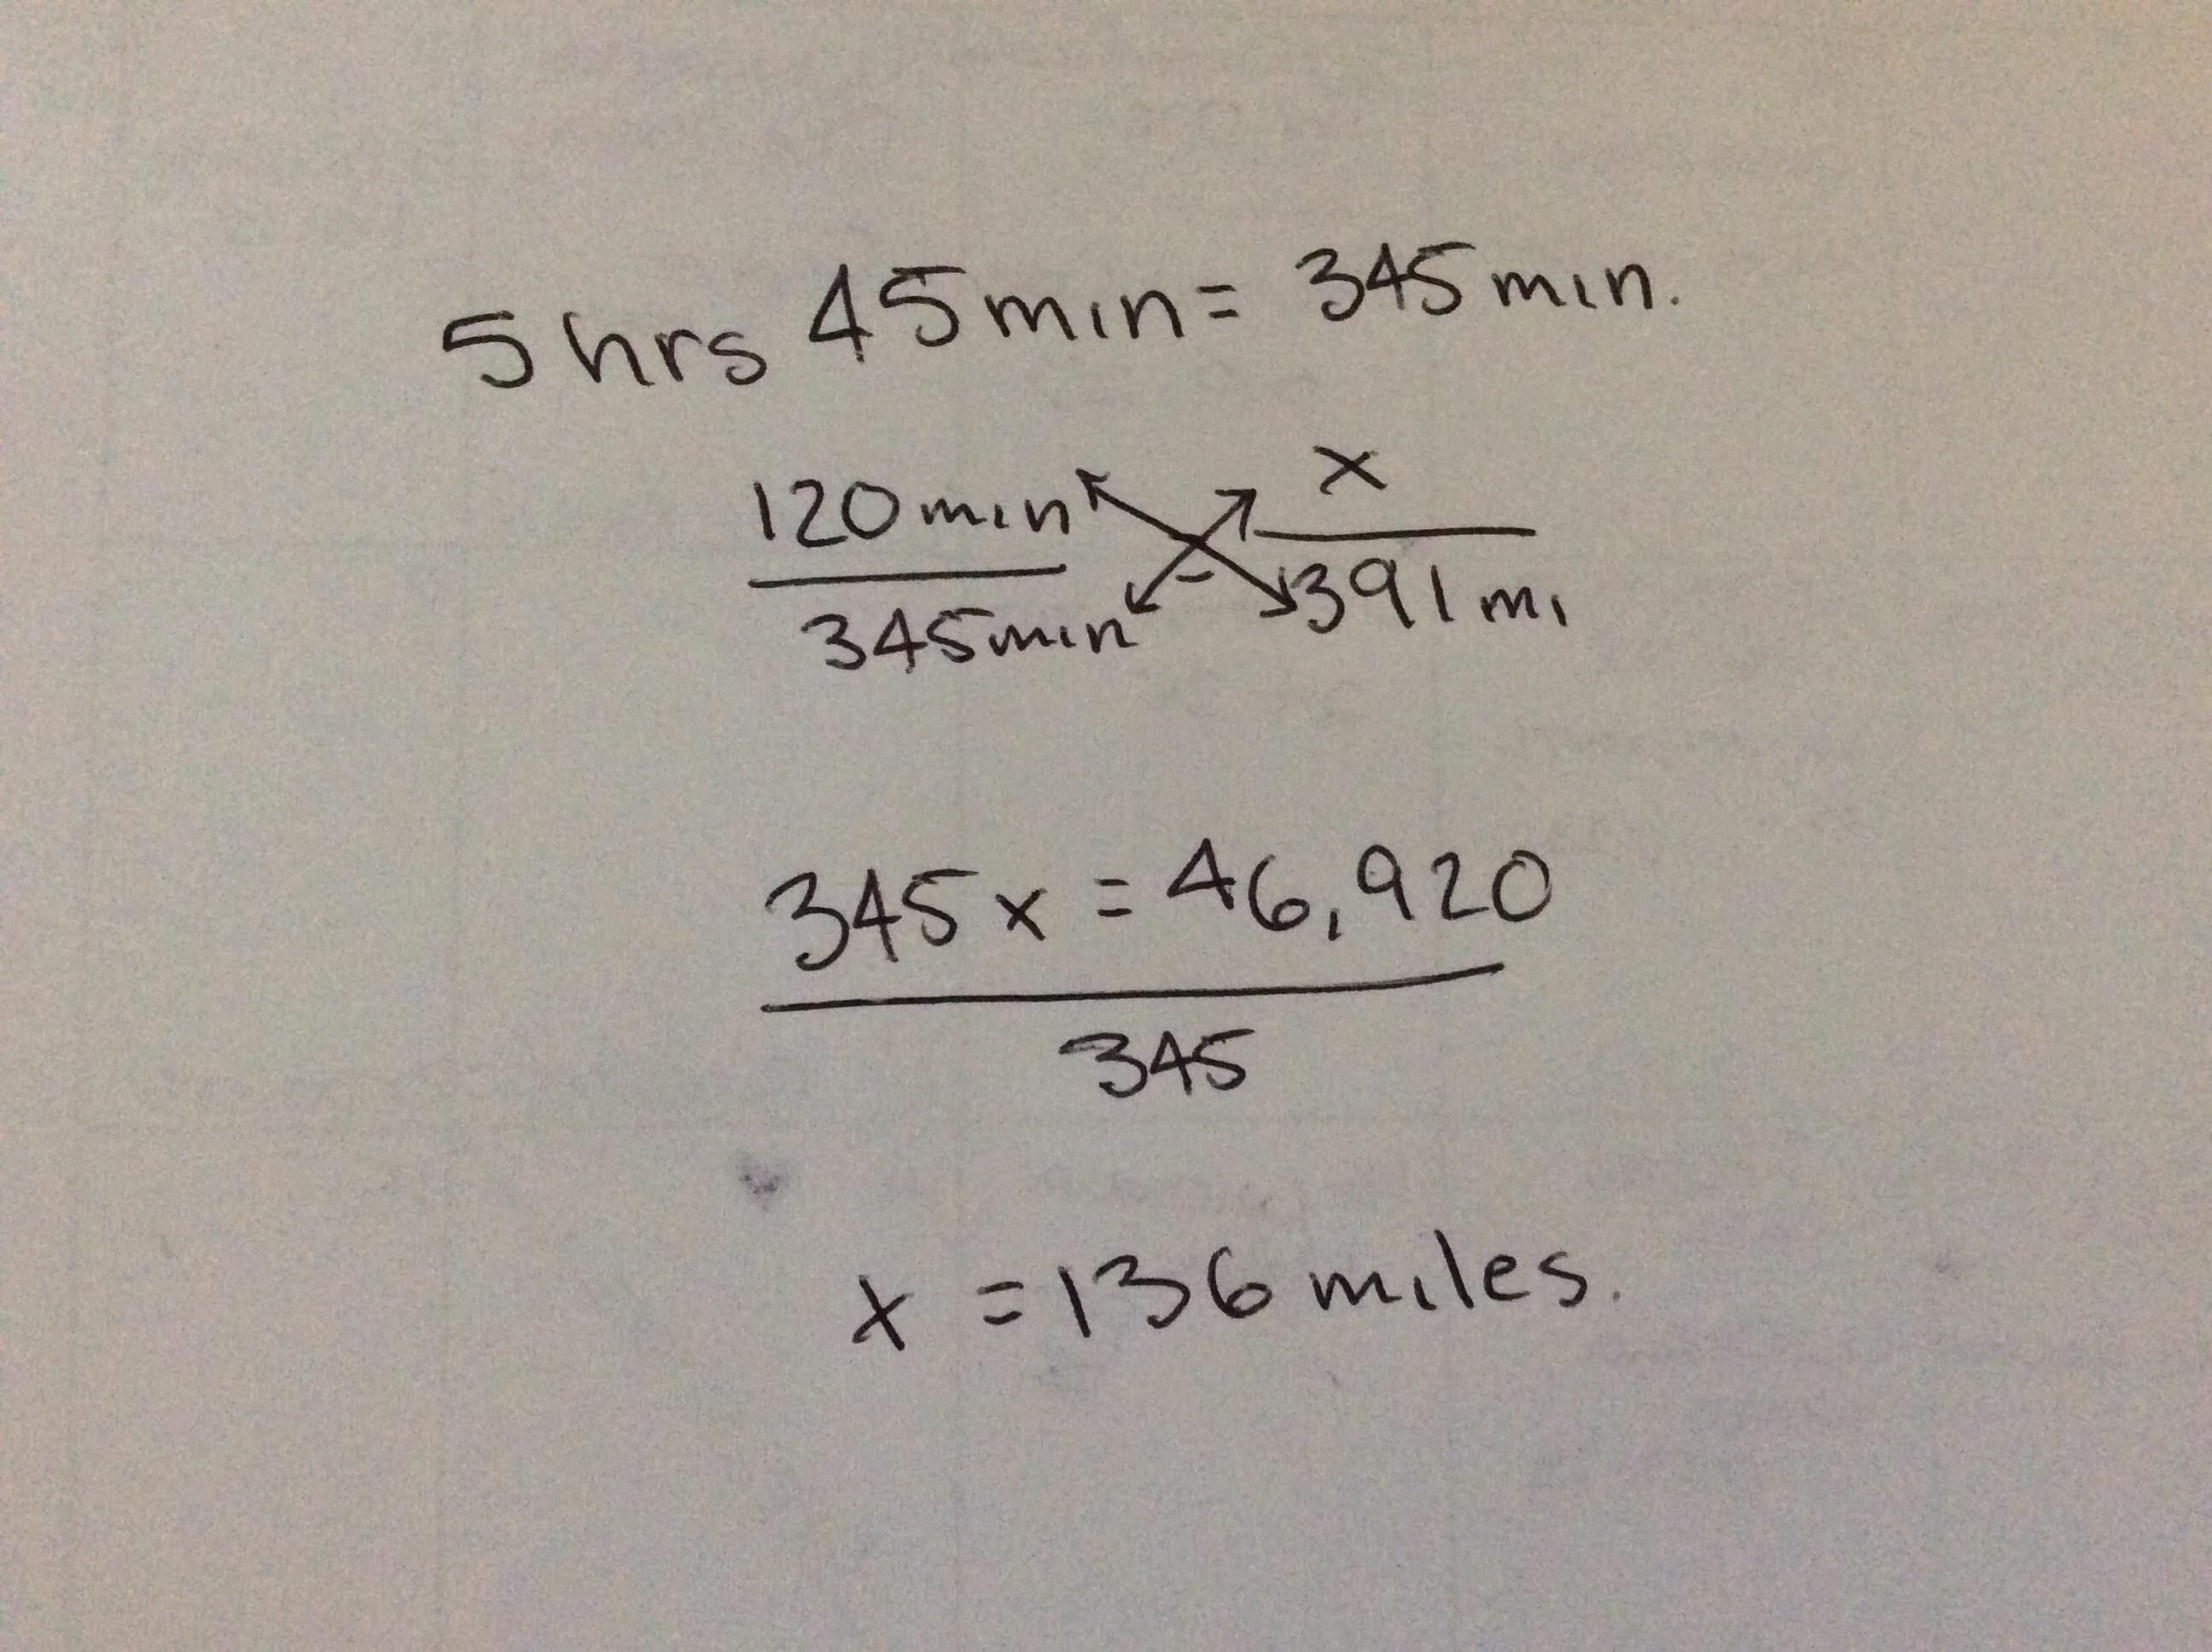 5 hrs 45 min = 345 min.
120 min x
= 
345 min 391 mi
345x = 46,920
345
x = 136 miles.